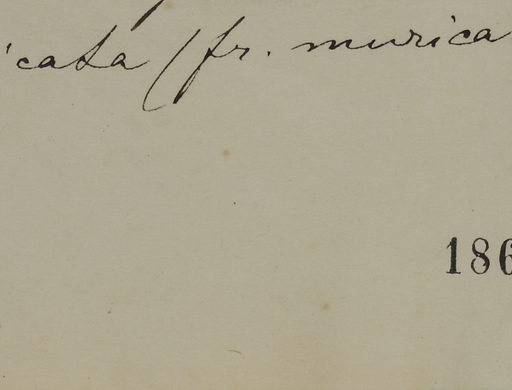 icata (fr. murica
186